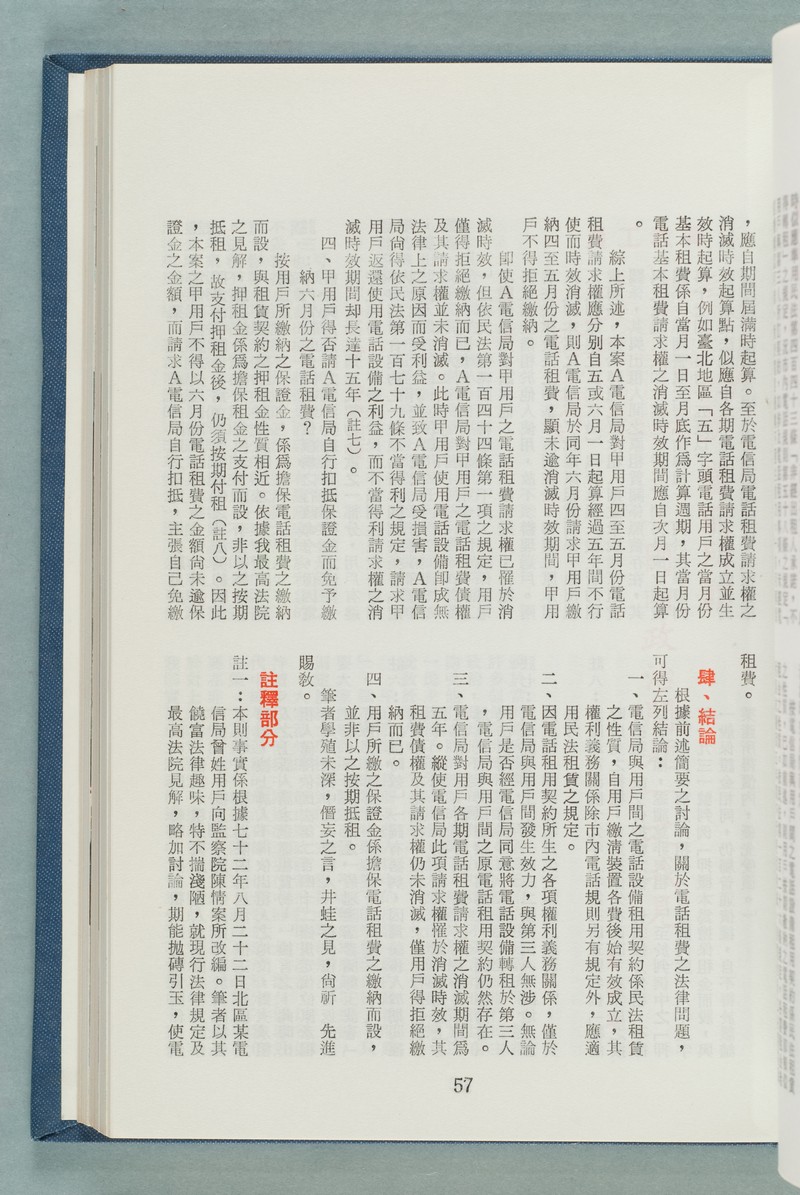 ，應自期間屆滿時起算。至於電信局電話租費請求權之
消滅時效起算點，似應自各期電話租費請求權成立並生
效時起算，例如臺北地區「五」字頭電話用戶之當月份
基本租費係自當月一日至月底作爲計算週期，其當月份
電話基本租費請求權之消滅時效期間應自次月一日起算
。
綜上所述，本案Ａ電信局對甲用戶四至五月份電話
租費請求權應分別自五或六月一日起算經過五年間不行
使而時效消滅，則Ａ電信局於同年六月份請求甲用戶繳
納四至五月份之電話租費，顯未逾消滅時效期間，甲用
戶不得拒絕繳納。
卽使Ａ電信局對甲用戶之電話租費請求權已罹於消
滅時效，但依民法第一百四十四條第一項之規定，用戶
僅得拒絕繳納而已，Ａ電信局對甲用戶之電話租費債權
及其請求權並未消滅。此時甲用戶使用電話設備卽成無
法律上之原因而受利益，並致Ａ電信局受損害，Ａ電信
局尙得依民法第一百七十九條不當得利之規定，請求甲
用戶返還使用電話設備之利益，而不當得利請求權之消
滅時效期間却長達十五年（註七）。
四、甲用戶得否請Ａ電信局自行扣抵保證金而免予繳
納六月份之電話租費？
按用戶所繳納之保證金，係爲擔保電話租費之繳納
而設，與租賃契約之押租金性質相近。依據我最高法院
之見解，押租金係爲擔保租金之支付而設，非以之按期
抵租，故支付押租金後，仍須按期付租（註八）。因此
，本案之甲用戶不得以六月份電話租費之金額尙未逾保
證金之金額，而請求Ａ電信局自行扣抵，主張自己免繳
租費。
肆、結論
根據前述簡要之討論，關於電話租費之法律問題，
可得左列結論：
一、電信局與用戶間之電話設備租用契約係民法租賃
之性質，自用戶繳淸裝置各費後始有效成立，其
權利義務關係除市內電話規則另有規定外，應適
用民法租賃之規定。
二、因電話租用契約所生之各項權利義務關係，僅於
電信局與用戶間發生效力，與第三人無涉。無論
用戶是否經電信局同意將電話設備轉租於第三人
，電信局與用戶間之原電話租用契約仍然存在。
三、電信局對用戶各期電話租費請求權之消滅期間爲
五年。縱使電信局此項請求權罹於消滅時效，其
租費債權及其請求權仍未消滅，僅用戶得拒絕繳
納而已。
四、用戶所繳之保證金係擔保電話租費之繳納而設，
並非以之按期抵租。
筆者學殖未深，僭妄之言，井蛙之見，尙祈　先進
賜敎。
註釋部分
註一：本則事實係根據七十二年八月二十二日北區某電
信局曾姓用戶向監察院陳情案所改編。筆者以其
饒富法律趣味，特不揣淺陋，就現行法律規定及
最高法院見解，略加討論，期能拋磚引玉，使電
57